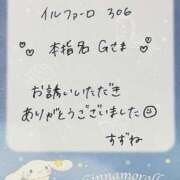 イルファーロ 306
本指名 Gさま
お誘いいただき
ありがとうございました
すずね
cinnamoroll